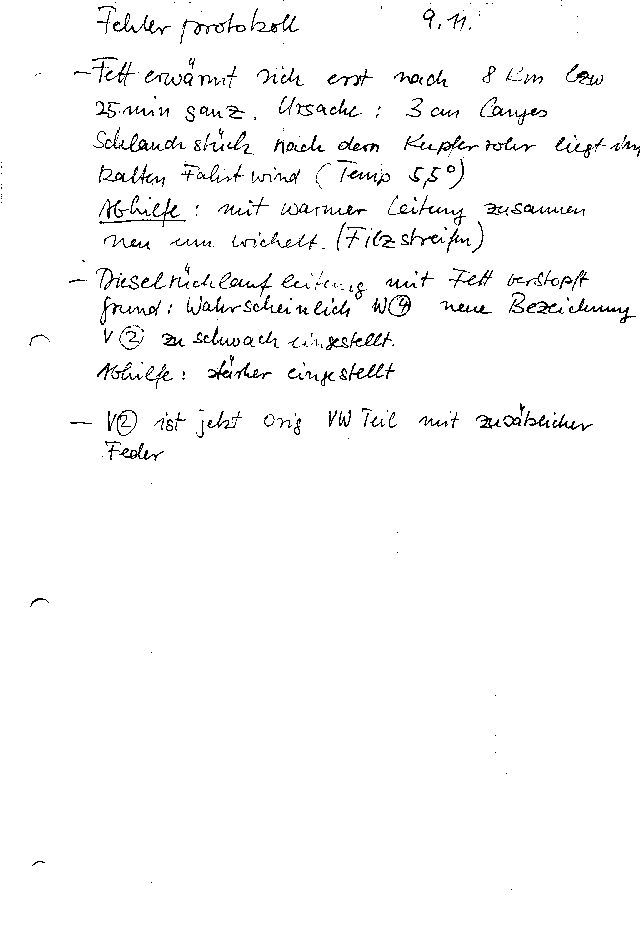 Fehlerprotokoll 9.11.
- Fett erwärmt sich erst nach 8 Km bzw
25 min ganz. Ursache: 3 cm langes
Schlauchstück nach dem Kupferrohr liegt im
kalten Fahrtwind (Temp 5,5°)
Abhilfe: mit warmer Leitung zusammen
neu umwickelt. (Filzstreifen)
- Dieselrücklaufleitung mit Fett verstopft
Grund: Wahrscheinlich neue Bezeichnung
V② zu schwach eingestellt.
Abhilfe: stärker eingestellt
- V② ist jetzt Orig VW Teil mit zusätzlicher
Feder